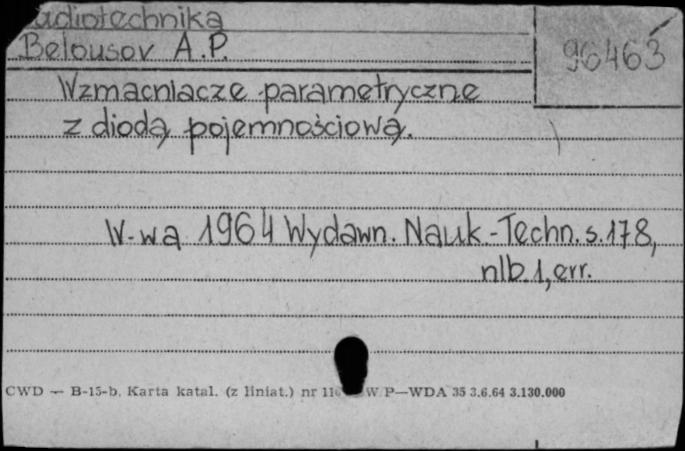 Radiotechnika
Belousov A.P.
96463
Wzmacniacze parametryczne
z diodą pojemnościową.
W-wa 1964 Wydawn. Nauk.-Techn. s. 178,
nlb. 1, err.
CWD — B-15-b. Karta katal. (z liniat.) nr W P—WDA 35 3.6.64 3.130.000